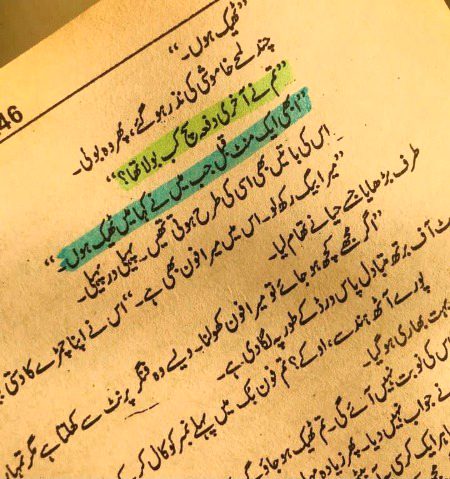 46
"ٹھیک ہوں۔"
چند لمحے خاموشی کی نذر ہو گئے، پھر وہ بولی۔
"تم نے آخری دفعہ سچ کب بولا تھا؟"
"ابھی ایک منٹ قبل جب میں نے کہا میں ٹھیک ہوں۔"
اس کی باتیں بھی اسی کی طرح ہوتی تھیں۔ پہیلی در پہیلی۔
"میرا بیگ رکھ لو۔ اس میں میرا فون بھی ہے۔" اس نے اپنا چمڑے کا دستی
طرف بڑھایا جسے حیا نے تھام لیا۔
"اگر مجھے کچھ ہو جائے تو میرا فون کھولنا۔ ویسے وہ فنگر پرنٹ سے کھلتا ہے مگر
آف برتھ متبادل پاس ورڈ کے طور پہ لگا دی ہے۔
پورے آٹھ ہندسے، اوکے؟ تم فون بک میں پہلے نمبر کو کال
بہت بھاری ہو گیا۔
اس کی نوبت نہیں آئے گی۔ تم ٹھیک ہو
نے جواب نہیں دیا۔ پھر زیادہ
ایک کرسی